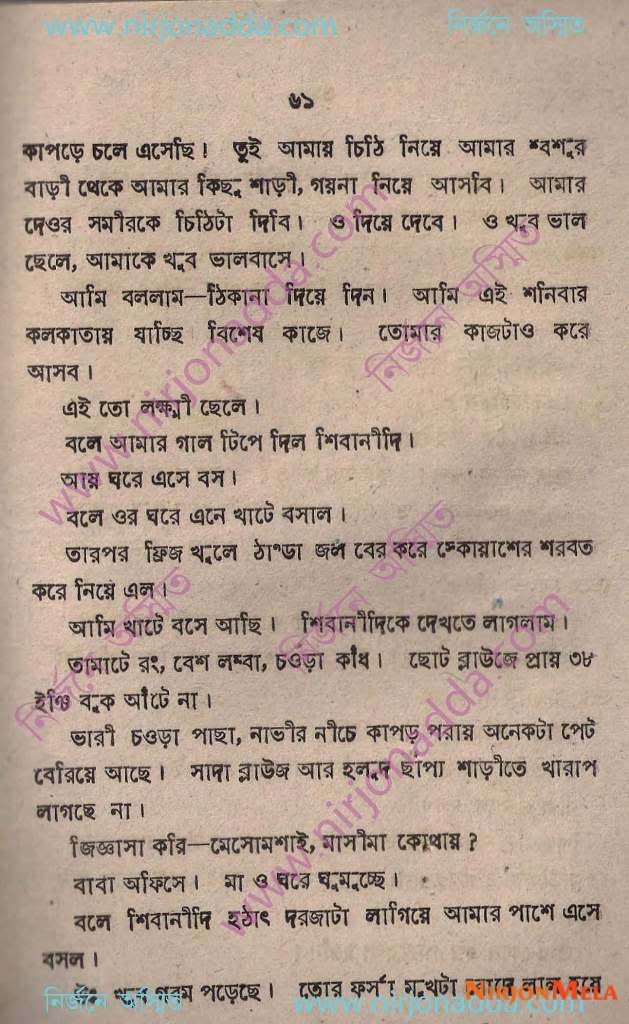 www.nirjonadda.com নির্জনে অস্মিত
৬১
কাপড়ে চলে এসেছি। তুই আমায় চিঠি নিয়ে আমার শ্বশুর
বাড়ী থেকে আমার কিছু শাড়ী, গয়না নিয়ে আসবি। আমার
দেওর সমীরকে চিঠিটা দিবি। ও দিয়ে দেবে। ও খুব ভাল
ছেলে, আমাকে খুব ভালবাসে।
আমি বললাম—ঠিকানা দিয়ে দিন। আমি এই শনিবার
কলকাতায় যাচ্ছি বিশেষ কাজে। তোমার কাজটাও করে
আসব।
এই তো লক্ষ্মী ছেলে।
বলে আমার গাল টিপে দিল শিবানীদি।
আয় ঘরে এসে বস।
বলে ওর ঘরে এনে খাটে বসাল।
তারপর ফ্রিজ খুলে ঠাণ্ডা জল বের করে স্কোয়াশের শরবত
করে নিয়ে এল।
আমি খাটে বসে আছি। শিবানীদিকে দেখতে লাগলাম।
তামাটে রং, বেশ লম্বা, চওড়া কাঁধ। ছোট ব্লাউজে প্রায় ৩৮
ইঞ্চি বুক আঁটে না।
ভারী চওড়া পাছা, নাভীর নীচে কাপড় পরায় অনেকটা পেট
বেরিয়ে আছে। সাদা ব্লাউজ আর হলুদ ছাপা শাড়ীতে খারাপ
লাগছে না।
জিজ্ঞাসা করি—মেসোমশাই, মাসীমা কোথায়?
বাবা অফিসে। মা ও ঘরে ঘুমুচ্ছে।
বলে শিবানীদি হঠাৎ দরজাটা লাগিয়ে আমার পাশে এসে
বসল।
খুব গরম পড়েছে। তোর ফর্সা মুখটা
নির্জনে অস্মিত www.nirjonadda.com NIRJONMELA